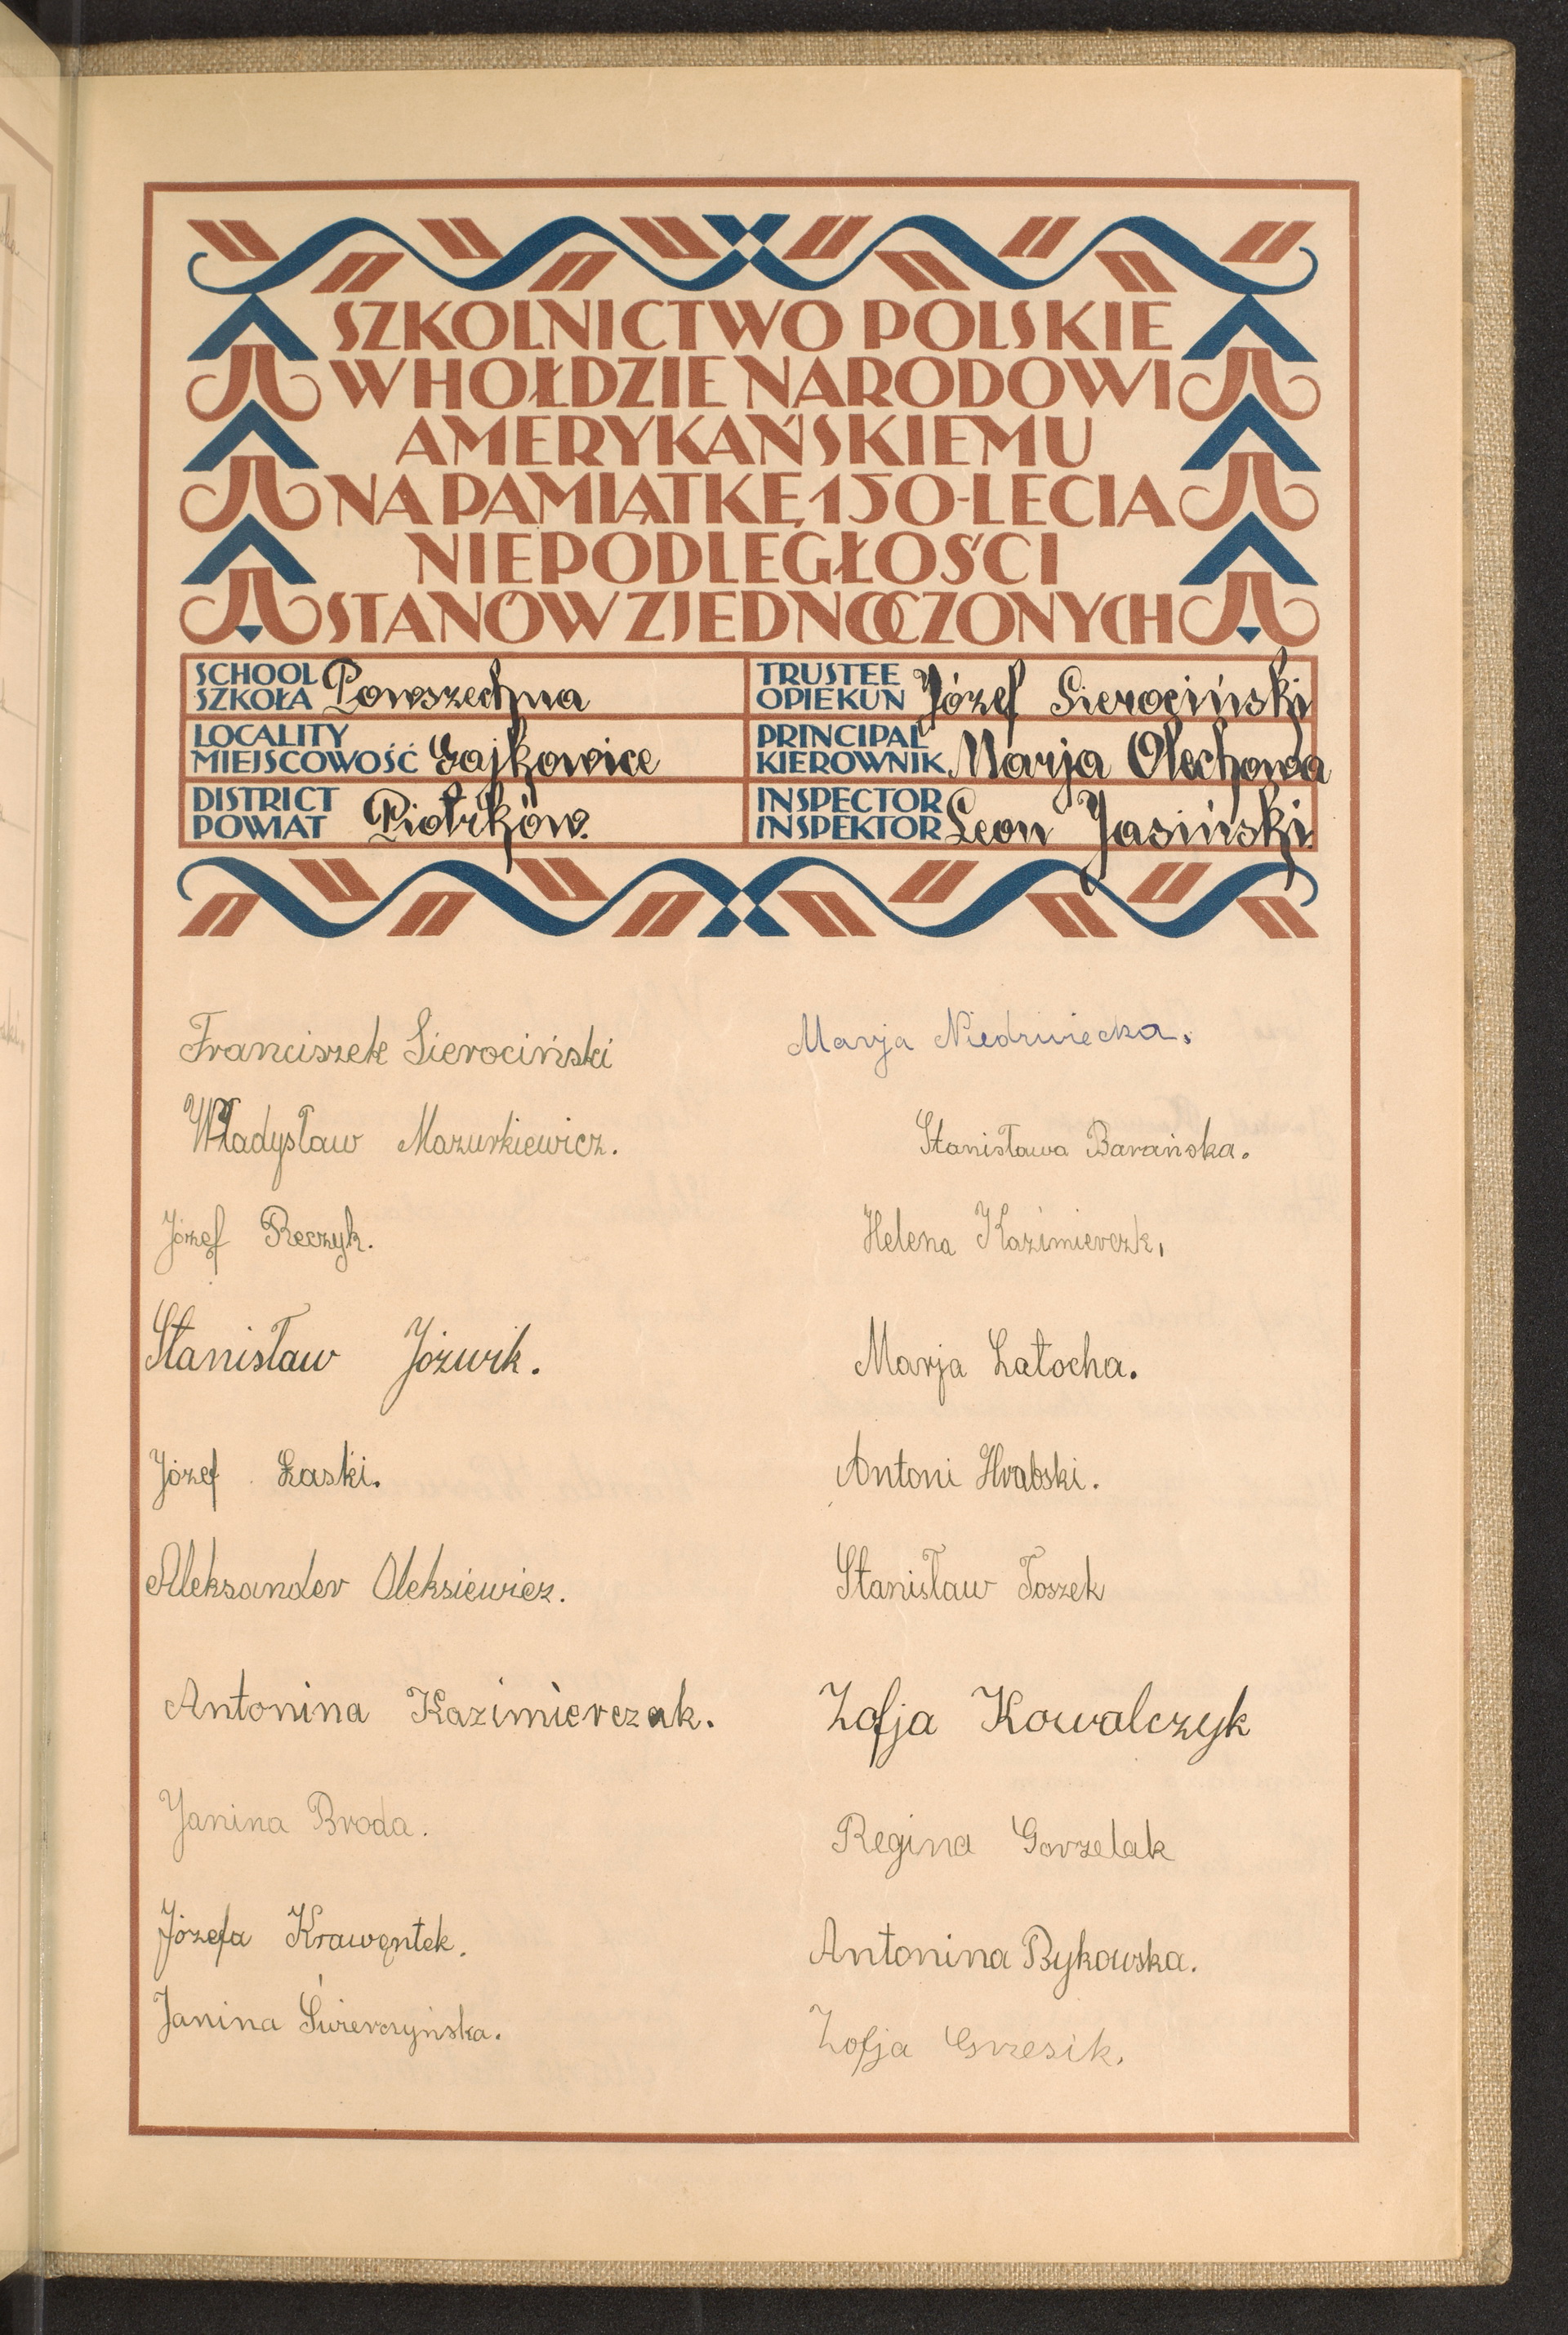 SZKOLNICTWO POLSKIE
W HOŁDZIE NARODOWI
AMERYKAŃSKIEMU
NA PAMIĄTKĘ 150-LECIA
NIEPODLEGŁOŚCI
STANÓW ZJEDNOCZONYCH
SCHOOL
SZKOŁA Powszechna
TRUSTEE
OPIEKUN Józef Sierociński
LOCALITY
MIEJSCOWOŚĆ Gajkowice
PRINCIPAL
KIEROWNIK Marja Olechowa
DISTRICT
POWIAT Piotrków.
INSPECTOR
INSPEKTOR Leon Jasiński.
Franciszek Sierociński
Władysław Mazurkiewicz.
Józef Reczyk.
Stanisław Jóźwik.
Józef Łaski.
Aleksander Oleksiewicz.
Antonina Kazimierczak.
Janina Broda.
Józefa Krawęntek.
Janina Świerczyńska.
Marja Niedzwiecka.
Stanisława Barańska.
Helena Kazimierczk,
Marja Łatocha.
Antoni Hrabski.
Stanisław Toszek
Zofja Kowalczyk
Regina Gorzelak
Antonina Bykowska.
Zofja Grzesik.